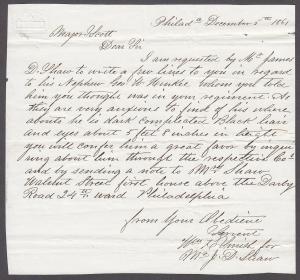 Philada December 5th 1861
Major Abbott
Dear Sir
I am requested by Mr James
D. Shaw to write a few lines to you in regard
to his Nephew Geo W. Winkie whom you told
him you thought was in your regiment. As
they are very anxious to find of his where
abouts he is dark complicated Black hair
and eyes about 5 feet 8 inches in heigth
you will confer him a great favor by inquir
ing about him through the respected Cos
and by sending a note to Mr Shaw
Walnut Street first house above the Darby
Road 24th ward Philadelphia
from Your Obedient
Servent
Wm for
Mr J. D. Shaw